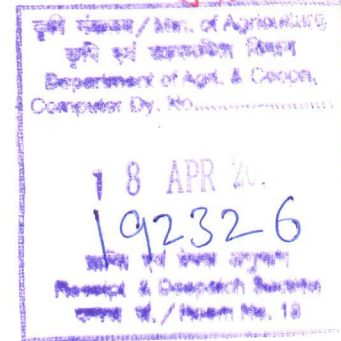 कृषि मंत्रालय / Min. of Agriculture
कृषि एवं सहकारिता विभाग
Department of Agri. & Coopn.
Computer Dy. No...............
18 APR 20
192326
Receipt & Despatch Section
/ Room No. 18